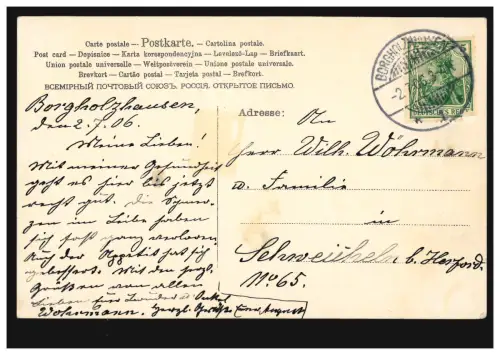 Carte postale — Postkarte. — Cartolina postale.
Post card — Dopisnice — Karta korespondencyjna — Levelező-Lap — Briefkaart.
Union postale universelle — Weltpostverein — Unione postale universale.
Brevkort — Cartão postal — Tarjeta postal — Brefkort.
ВСЕМІРНЫЙ ПОЧТОВЫЙ СОЮЗЪ. РОССІЯ. ОТКРЫТОЕ ПИСЬМО.
BORGHOLZHAUSEN
DEUTSCHES REICH
Borgholzhausen,
den 2.7.06.
Meine Lieben!
Mit meiner Gesundheit
geht es hier bis jetzt
recht gut. Die Schmer-
zen im Leibe haben
sich fast ganz verloren.
Auch der Appetit hat sich
gebessert. Mit den herzl.
Grüßen von allen
Lieben hier Onkel
Wöhrmann. Herzl. Grüße August
Adresse:
An
Herrn Wilh. Wöhrmann
u. Familie
in
Schweicheln b. Herford.
No 65.